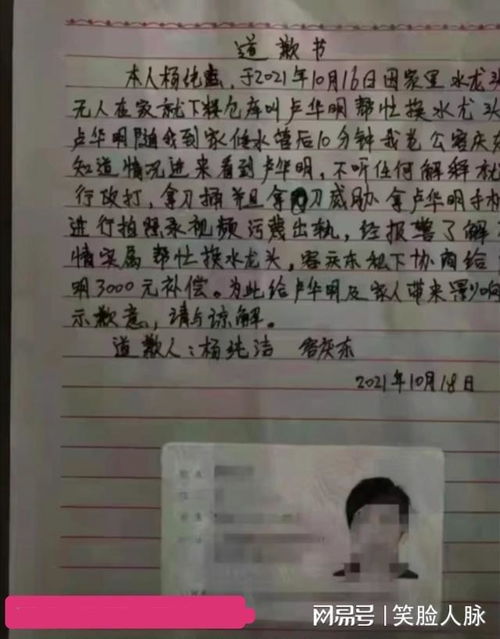 道歉书
本人杨纯洁,于2021年10月16日因家里水龙头
无人在家就下粮仓库叫卢华明帮忙换水龙头
卢华明随我到家修水管后10分钟我老公客庆东
知道情况进来看到卢华明,不听任何解释就
行攻打,拿刀捅并且拿刀威胁拿卢华明手机
进行拍照录视频污蔑出轨,经报警了解
情实属帮忙换水龙头,客庆东私下协商给
明3000元补偿。为此给卢华明及家人带来影响
示歉意,请与谅解。
道歉人:杨纯洁 客庆东
2021年10月18日
网易号 | 笑脸人脉